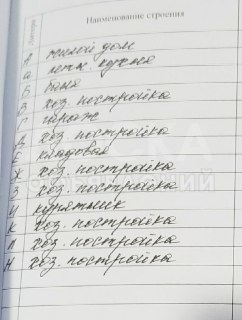 Литера Наименование строения
А жилой дом
а летн. кухня
Б баня
В хоз. постройка
Г гараж
Д хоз. постройка
Е кладовая
Ж хоз. постройка
З хоз. постройка
И курятник
К хоз. постройка
Л хоз. постройка
Н хоз. постройка